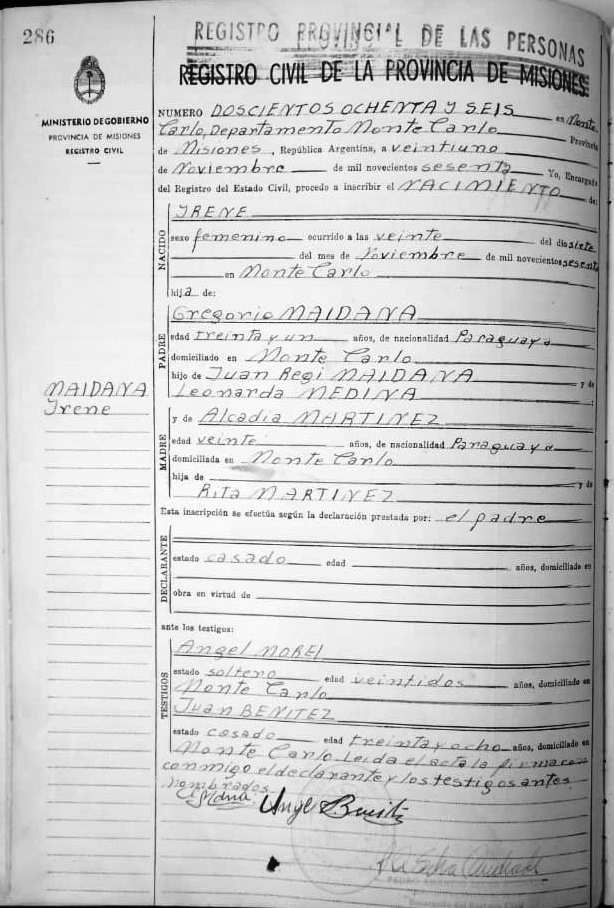 286
REGISTRO PROVINCIAL DE LAS PERSONAS
REGISTRO CIVIL DE LA PROVINCIA DE MISIONES
MINISTERIO DE GOBIERNO
PROVINCIA DE MISIONES
REGISTRO CIVIL
NUMERO DOSCIENTOS OCHENTA Y SEIS en Monte
Carlo, Departamento Monte Carlo Provincia
de Misiones, República Argentina, a veintiuno
de Noviembre de mil novecientos sesenta Yo, Encargado
del Registro del Estado Civil, procedo a inscribir el NACIMIENTO de:
NACIDO
IRENE
sexo femenino ocurrido a las veinte del dia siete
del mes de Noviembre de mil novecientos sesenta
en Monte Carlo
hija de:
PADRE
Gregorio MAIDANA
edad treinta y un años, de nacionalidad Paraguaya
domiciliado en Monte Carlo
hijo de Juan Regi MAIDANA y de
Leonarda MEDINA
MAIDANA
Irene
MADRE
y de Alcadia MARTINEZ
edad veinte años, de nacionalidad Paraguaya
domiciliada en Monte Carlo
hija de y de
Rita MARTINEZ
Esta inscripción se efectúa según la declaración prestada por: el padre
DECLARANTE
estado casado edad años, domiciliado en
obra en virtud de
ante los testigos:
TESTIGOS
Angel NOBEL
estado soltero edad veintidos años, domiciliado en
Monte Carlo
Juan BENITEZ
estado casado edad treinta y ocho años, domiciliado en
Monte Carlo Leida el acta la firmaron
conmigo el declarante y los testigos antes
nombrados.